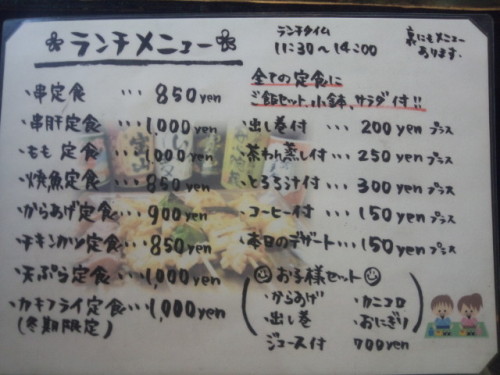 ランチメニュー
ランチタイム
11:30～14:00
裏にもメニュー
あります.
・串定食 ... 850yen
・串肝定食 ... 1,000yen
・もも定食 ... 1,000yen
・焼魚定食 ... 850yen
・からあげ定食 ... 900yen
・チキンカツ定食 ... 850yen
・天ぷら定食 ... 1,000yen
・カキフライ定食 ... 1,000yen
(冬期限定)
全ての定食に
ご飯セット、小鉢、サラダ付!!
・出し巻付 ... 200yenプラス
・茶わん蒸し付 ... 250yenプラス
・とろろ汁付 ... 300yenプラス
・コーヒー付 ... 150yenプラス
・本日のデザート ... 150yenプラス
お子様セット
・からあげ ・カニコロ
・出し巻 ・おにぎり
ジュース付 700yen